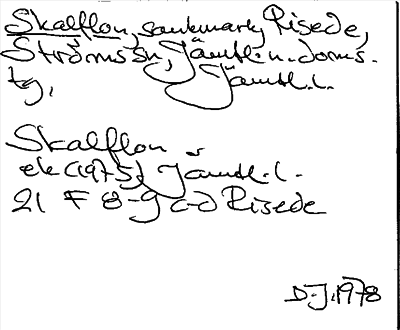 Skalflon, sankmark, Risede,
Ströms sn, Jämtl. n. doms.
tg, Jämtl.l.
Skalflon
ek (1975) Jämtl.l.
21 F 8-9 c-d Risede
D-J. 1978